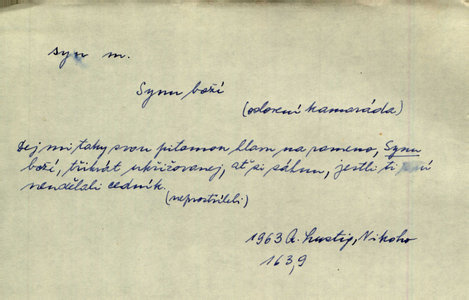 syn m.
Synu boží
(oslovení kamaráda)
Dej mi taky svou pitomou hlavu na rameno, Synu
boží, třikrát ukřižovanej, ať si sáhnu, jestli ti z ní
neudělali cedník.
(neprostříleli)
1963 A. Lustig, Nikoho
163,9